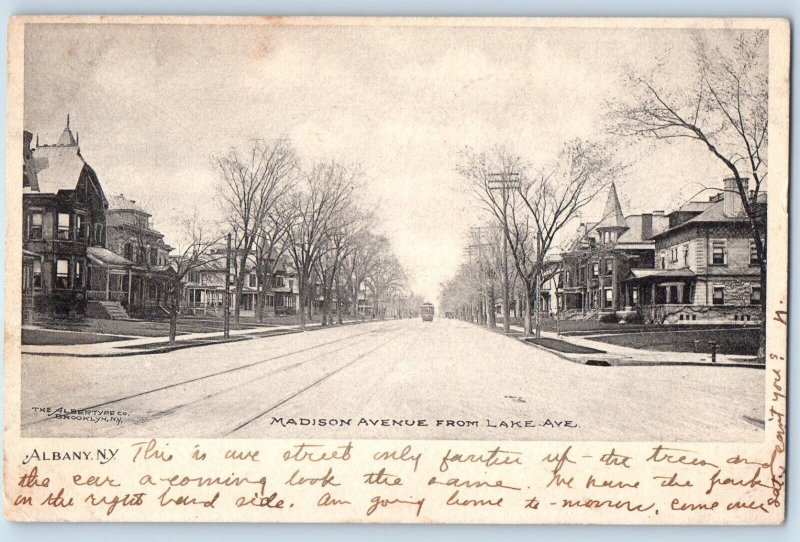 THE ALBERTYPE CO.
BROOKLYN, N.Y.
MADISON AVENUE FROM LAKE AVE.
ALBANY, N.Y.
This is our street only farther up - the trees and
the car a-coming look the same. We have the park
on the right hand side. Am going home to-morrow, come over
can't you?